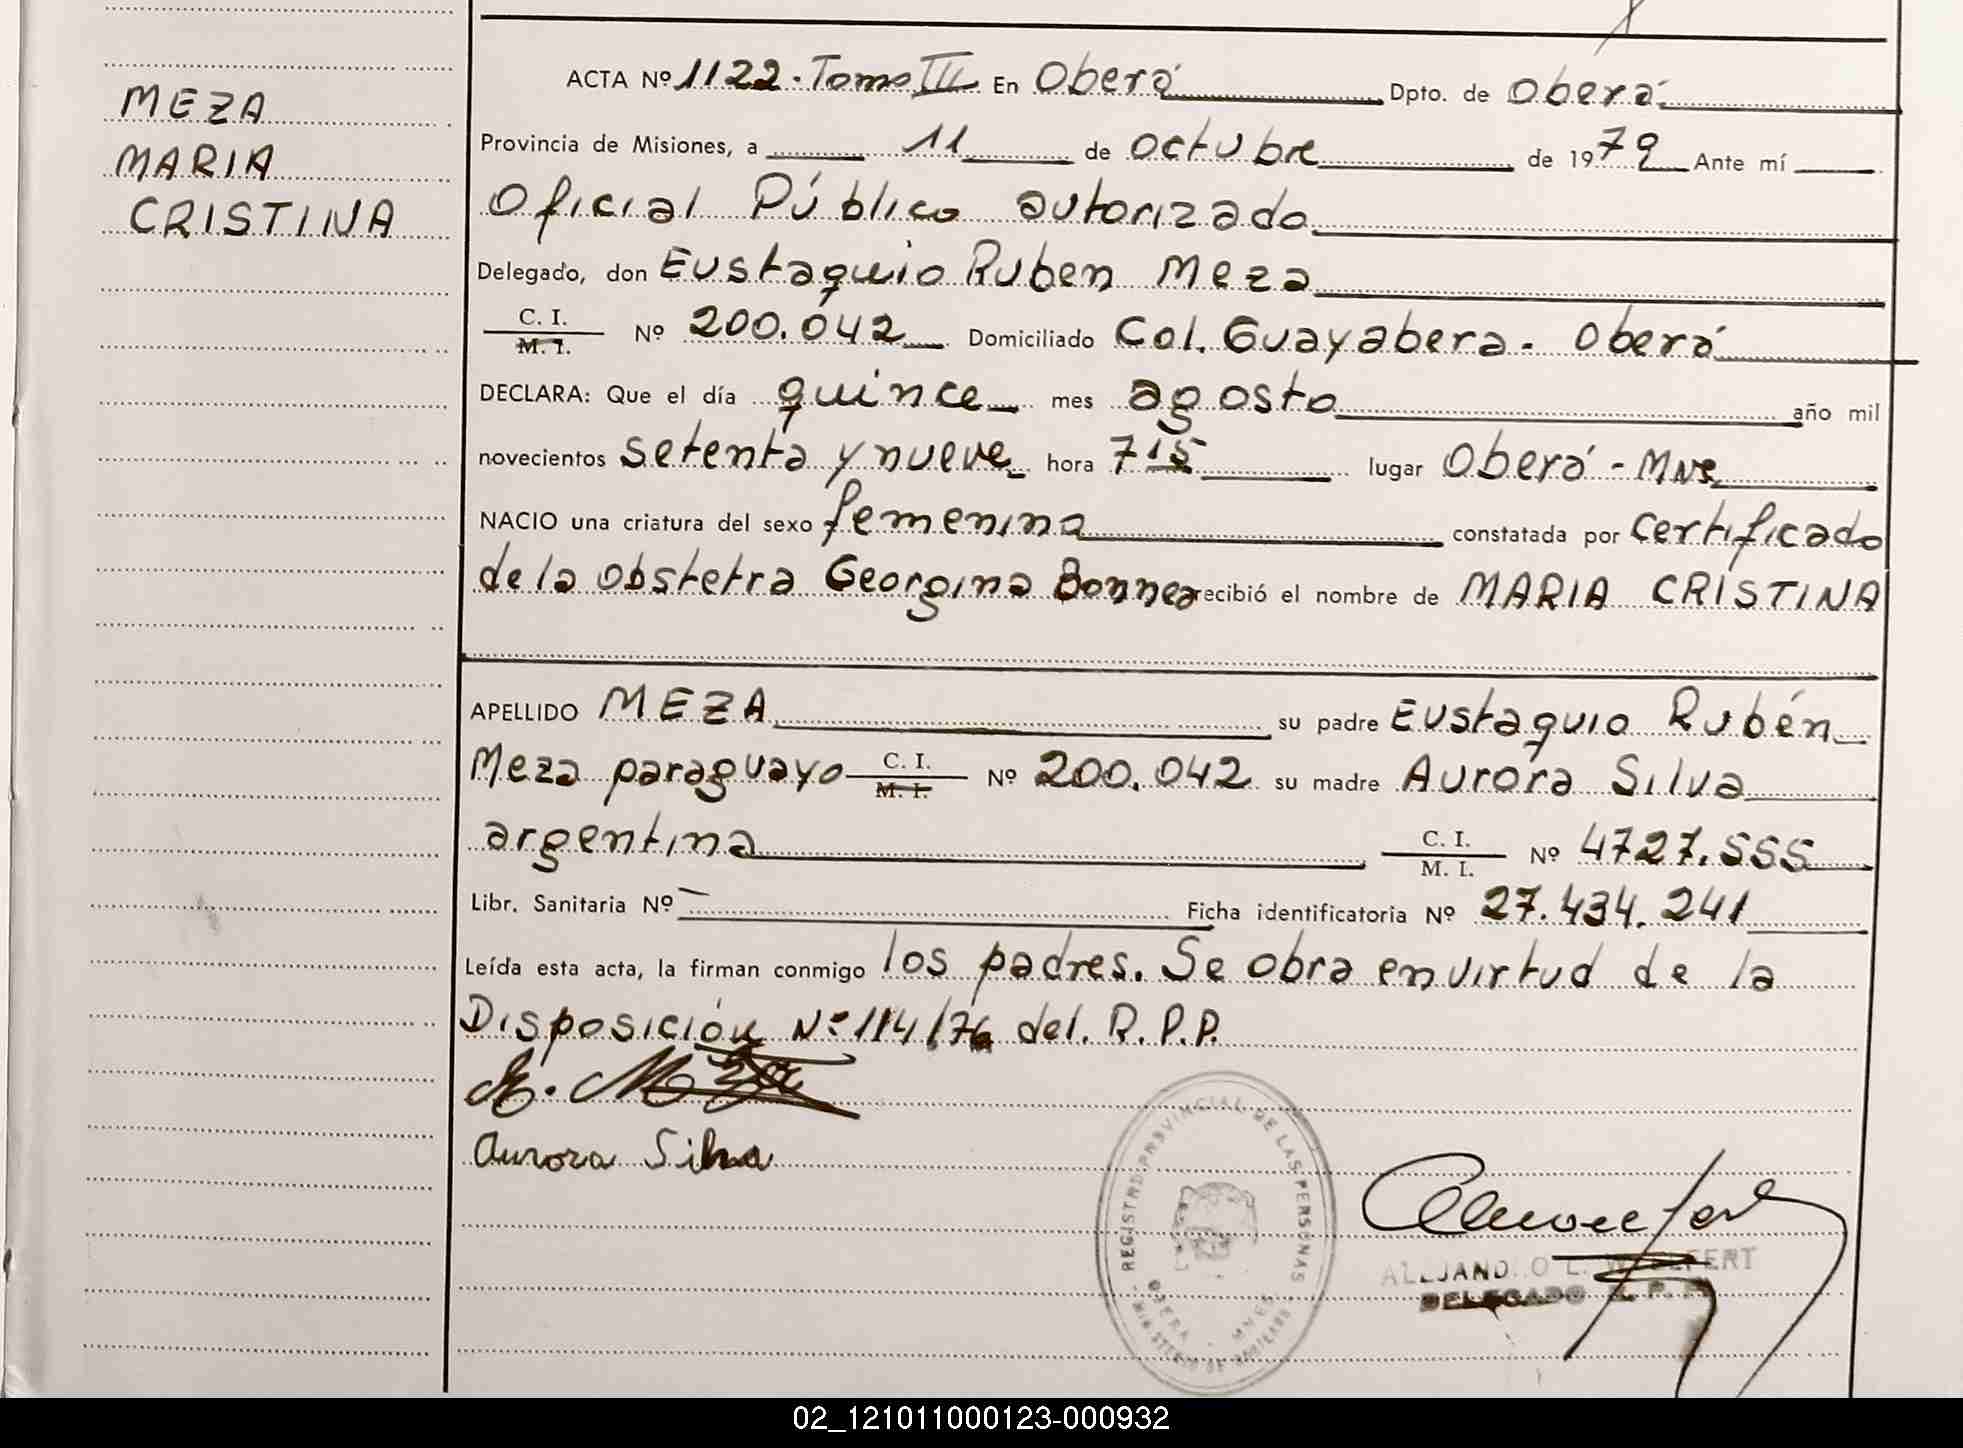 MEZA
MARIA
CRISTINA
ACTA Nº 1122. Tomo III En Oberá Dpto. de Oberá
Provincia de Misiones, a 11 de octubre de 1979 Ante mí
Oficial Público autorizado
Delegado, don Eustaquio Ruben Meza
C. I. M. I. Nº 200.042 Domiciliado Col. Guayabera - Oberá
DECLARA: Que el día quince mes agosto año mil
novecientos setenta y nueve hora 7 15 lugar Oberá - Mnes
NACIO una criatura del sexo femenina constatada por certificado
de la obstetra Georgina recibió el nombre de MARIA CRISTINA
APELLIDO MEZA su padre Eustaquio Rubén
Meza paraguayo C. I. M. I. Nº 200.042 su madre Aurora Silva
argentina C. I. M. I. Nº 4727.555
Libr. Sanitaria Nº — Ficha identificatoria Nº 27.434.241
Leída esta acta, la firman conmigo los padres. Se obra en virtud de la
Disposición Nº 114/76 del. R.P.P.
E. Meza
Aurora Silva
REGISTRO PROVINCIAL DE LAS PERSONAS
OBERA - MNES.
MINISTERIO DE
DELEGADO R. P. P.
02_121011000123-000932